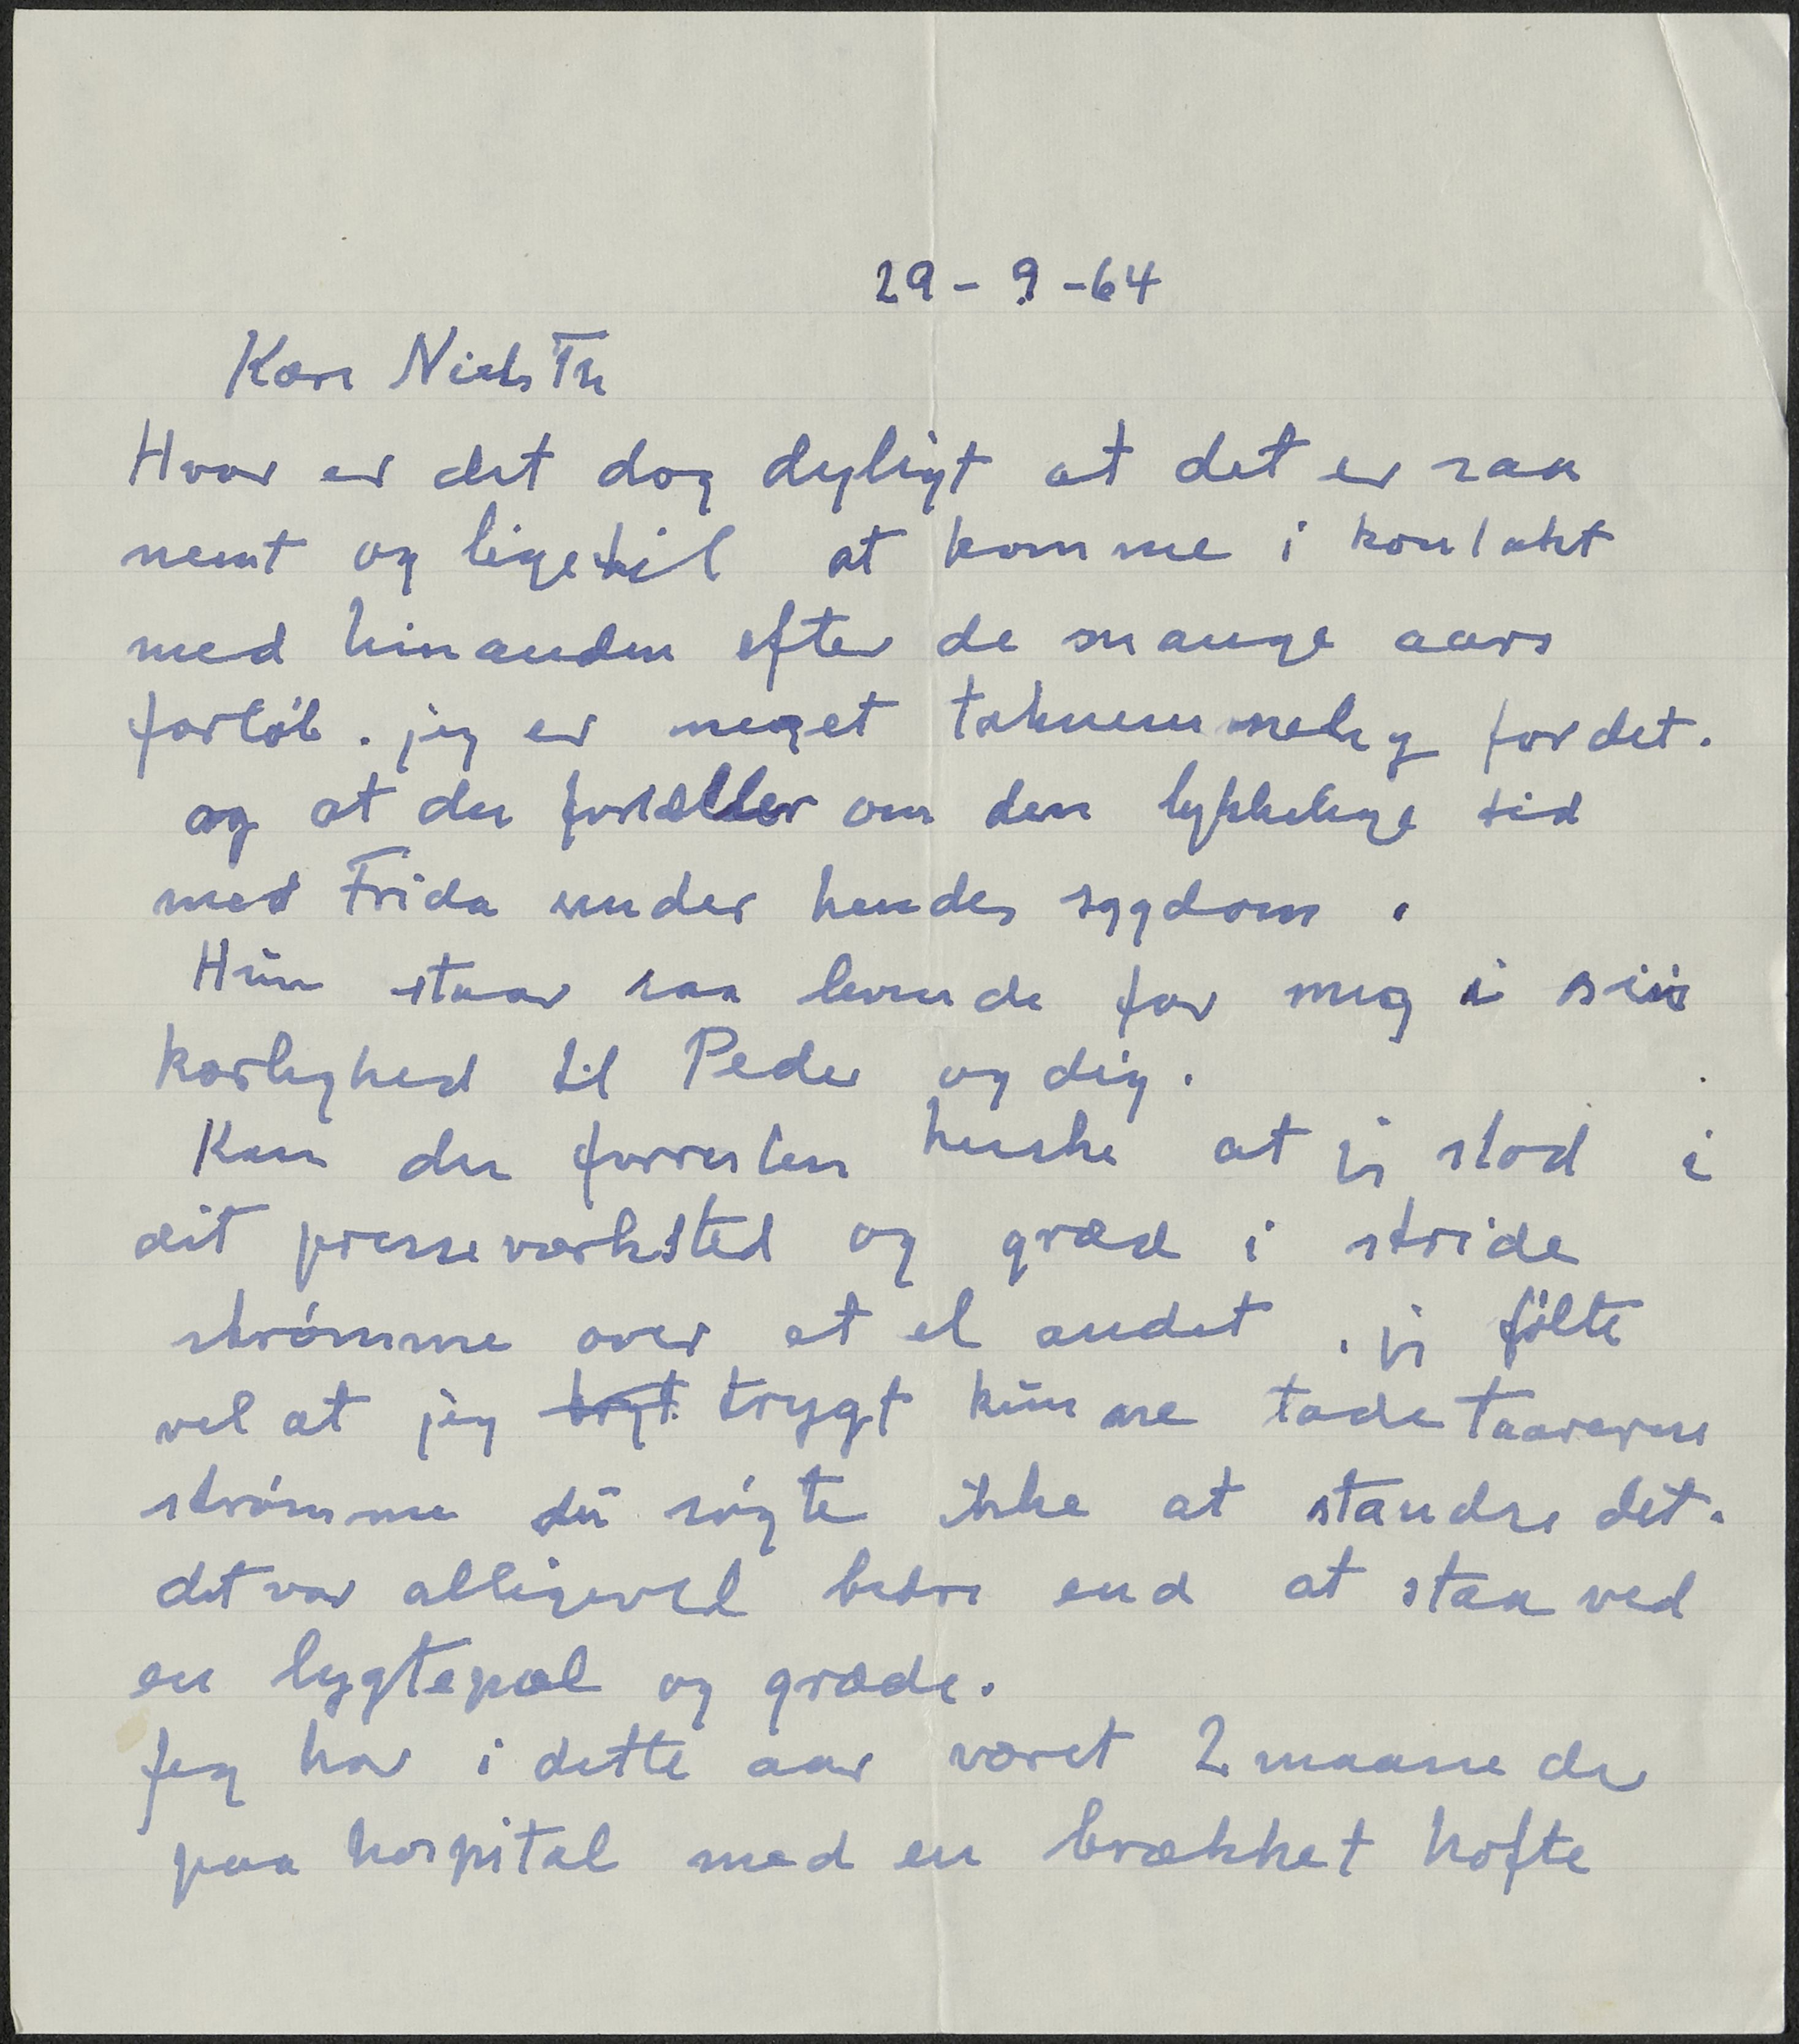 29 - 9 - 64
Kære Niels Th
Hvor er det dog dyligt at det er saa
nemt og ligetil at komme i kontakt
med hinanden efter de mange aars
forløb. jeg er meget taknemmelig for det.
og at du fortæller om den lykkelige tid
med Frida under hendes sygdom.
Hun staar saa levende for mig i sin
kærlighed til Peder og dig.
Kan du forresten huske at jeg stod i
dit presseværksted og græd i stride
strømme over et el andet. jeg følte
vel at jeg trygt trygt kunne lade taarerne
strømme du søgte ikke at standse det.
det var alligevel bedre end at staa ved
en lygtepæl og græde.
Jeg har i dette aar været 2 maaneder
paa hospital med en brækket hofte